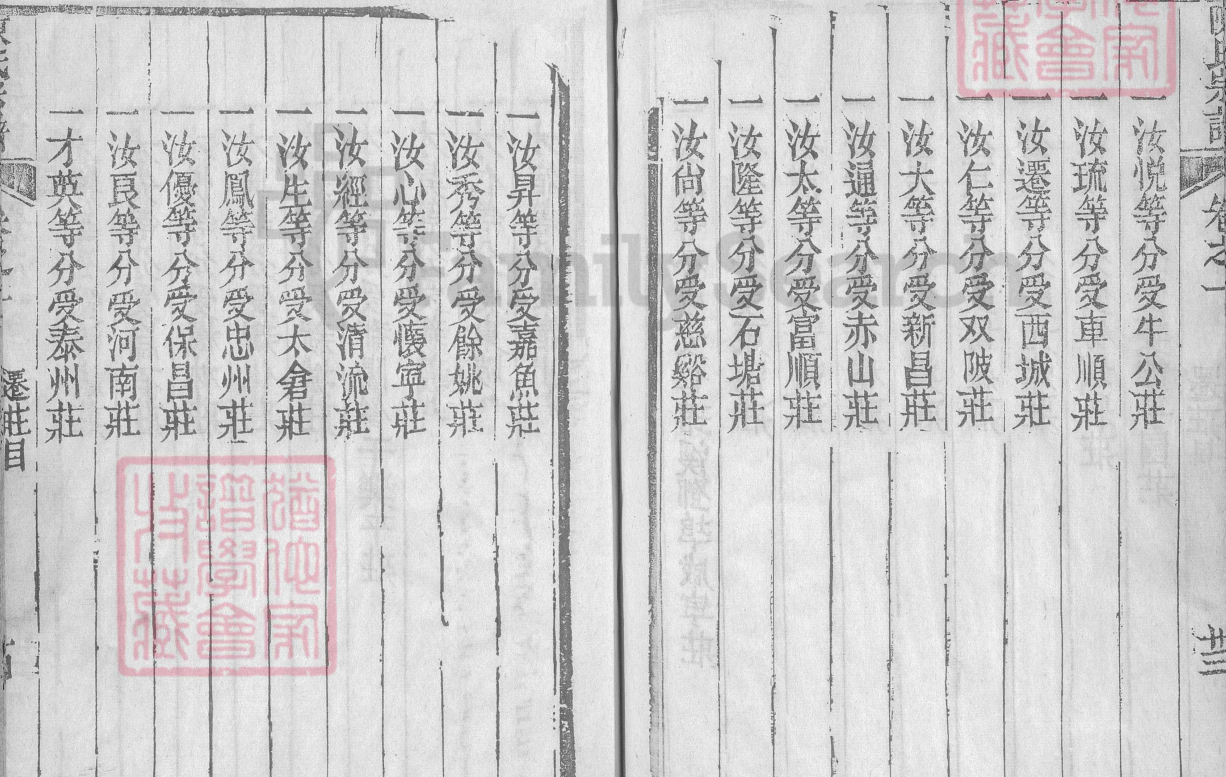 陳氏宗譜
卷之一
卅三
一汝悅等分受牛公莊
一汝琉等分受車順莊
一汝遷等分受西城莊
一汝仁等分受双陂莊
一汝大等分受新昌莊
一汝通等分受赤山莊
一汝太等分受富順莊
一汝隆等分受石塘莊
一汝尙等分受慈谿莊
一汝昇等分受嘉魚莊
一汝秀等分受餘姚莊
一汝心等分受懷寧莊
一汝經等分受淸流莊
一汝生等分受太倉莊
一汝鳳等分受忠州莊
一汝優等分受保昌莊
一汝良等分受河南莊
一才英等分受泰州莊
遷莊目
FamilySearch